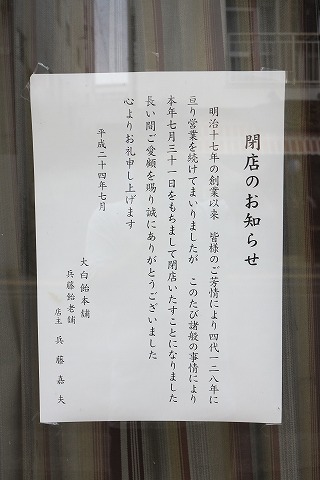 閉店のお知らせ
明治十七年の創業以来　皆様のご芳情により四代一二八年に
亘り営業を続けてまいりましたが　このたび諸般の事情により
本年七月三十一日をもちまして閉店いたすことになりました
長い間ご愛顧を賜り誠にありがとうございました
心よりお礼申し上げます
平成二十四年七月
大白飴本舗
兵藤飴老舗
店主　兵藤嘉夫